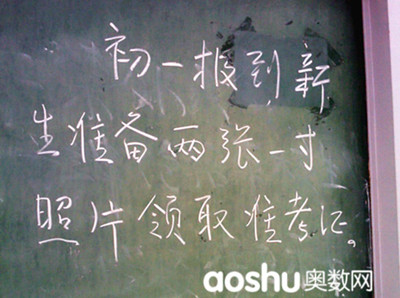 初一报到新
生准备两张一寸
照片领取准考证。
aoshu奥数网